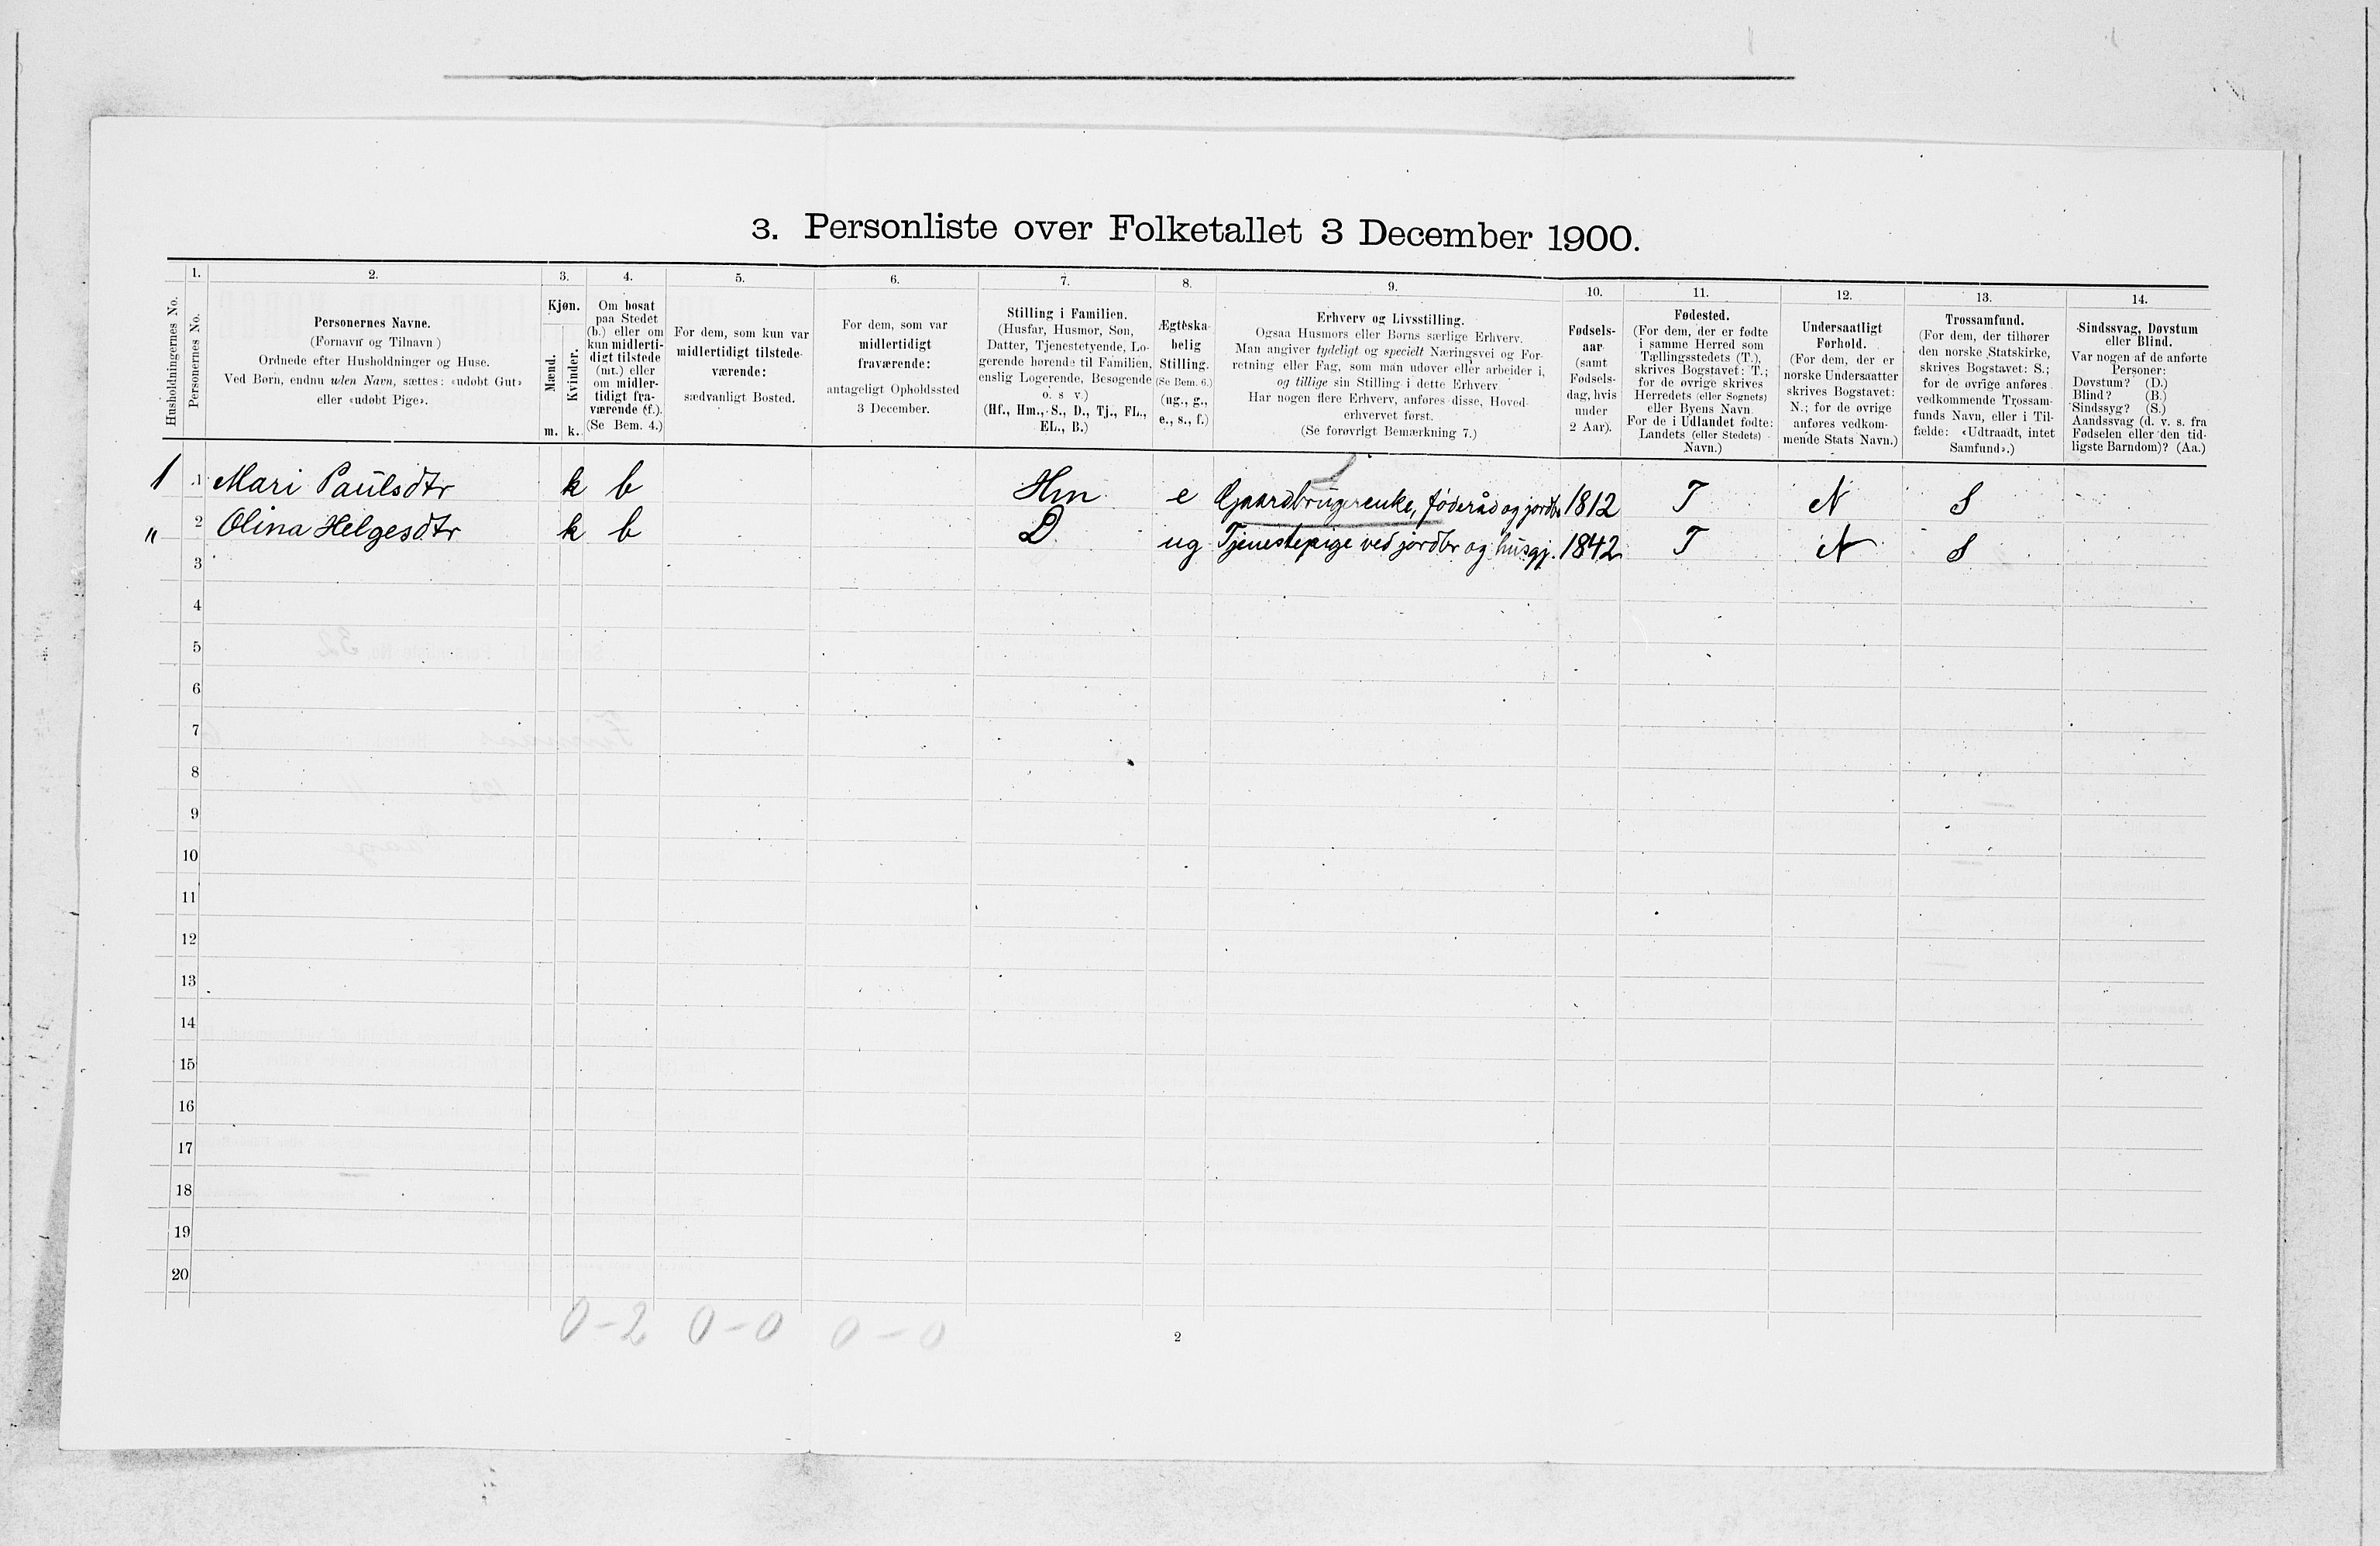 3. Personliste over Folketallet 3 December 1900.
Husholdningernes No.
1.
Personernes No.
2.
Personernes Navne.
(Fornavn og Tilnavn )
Ordnede efter Husholdninger og Huse.
Ved Børn, endnu uden Navn, sættes: «udøbt Gut»
eller «udøbt Pige».
3.
Kjøn.
Mænd.
Kvinder.
m. k.
4.
Om bosat
paa Stedet
(b.) eller om
kun midlerti-
digt tilstede
(mt.) eller
om midler-
tidigt fra-
værende (f.).
(Se Bem. 4.)
5.
For dem, som kun var
midlertidigt tilstede-
værende:
sædvanligt Bosted.
6.
For dem, som var
midlertidigt
fraværende:
antageligt Opholdssted
3 December.
7.
Stilling i Familien.
(Husfar, Husmor, Søn,
Datter, Tjenestetyende, Lo-
gerende hørende til Familien,
enslig Logerende, Besøgende
o. s v.)
(Hf., Hm., S., D., Tj., FL.,
EL., B.)
8.
Ægteska-
belig
Stilling.
(Se Bem. 6.)
(ug., g.,
e., s., f.)
9.
Erhverv og Livsstilling.
Ogsaa Husmors eller Børns særlige Erhverv.
Man angiver tydeligt og specielt Næringsvei og For-
retning eller Fag, som man udøver eller arbeider i,
og tillige sin Stilling i dette Erhverv
Har nogen flere Erhverv, anføres disse, Hoved-
erhvervet først.
(Se forøvrigt Bemærkning 7.)
10.
Fødsels-
aar
(samt
Fødsels-
dag, hvis
under
2 Aar).
11.
Fødested.
(For dem, der er fødte
i samme Herred som
Tællingsstedets (T.),
skrives Bogstavet: T.;
for de øvrige skrives
Herredets (eller Sognets)
eller Byens Navn.
For de i Udlandet fødte:
Landets (eller Stedets)
Navn.)
12.
Undersaatligt
Forhold.
(For dem, der er
norske Undersaatter
skrives Bogstavet:
N.; for de øvrige
anføres vedkom-
mende Stats Navn.)
13.
Trossamfund.
(For dem, der tilhører
den norske Statskirke,
skrives Bogstavet: S.;
for de øvrige anføres
vedkommende Trossam-
funds Navn, eller i Til-
fælde: «Udtraadt, intet
Samfund».)
14.
Sindssvag, Døvstum
eller Blind.
Var nogen af de anførte
Personer:
Døvstum? (D.)
Blind? (B.)
Sindssyg? (S.)
Aandssvag (d. v. s. fra
Fødselen eller den tid-
ligste Barndom)? (Aa.)
1 1 Mari Paulsdtr k b Hm e Gaardbrugerenke, föderåd og jordbr 1812 T N S
" 2 Olina Helgesdtr k b D ug Tjenestepige ved jordbr og husgj. 1842 T N S
3
4
5
6
7
8
9
10
11
12
13
14
15
16
17
18
19
20
0-2 0-0 0-0
2